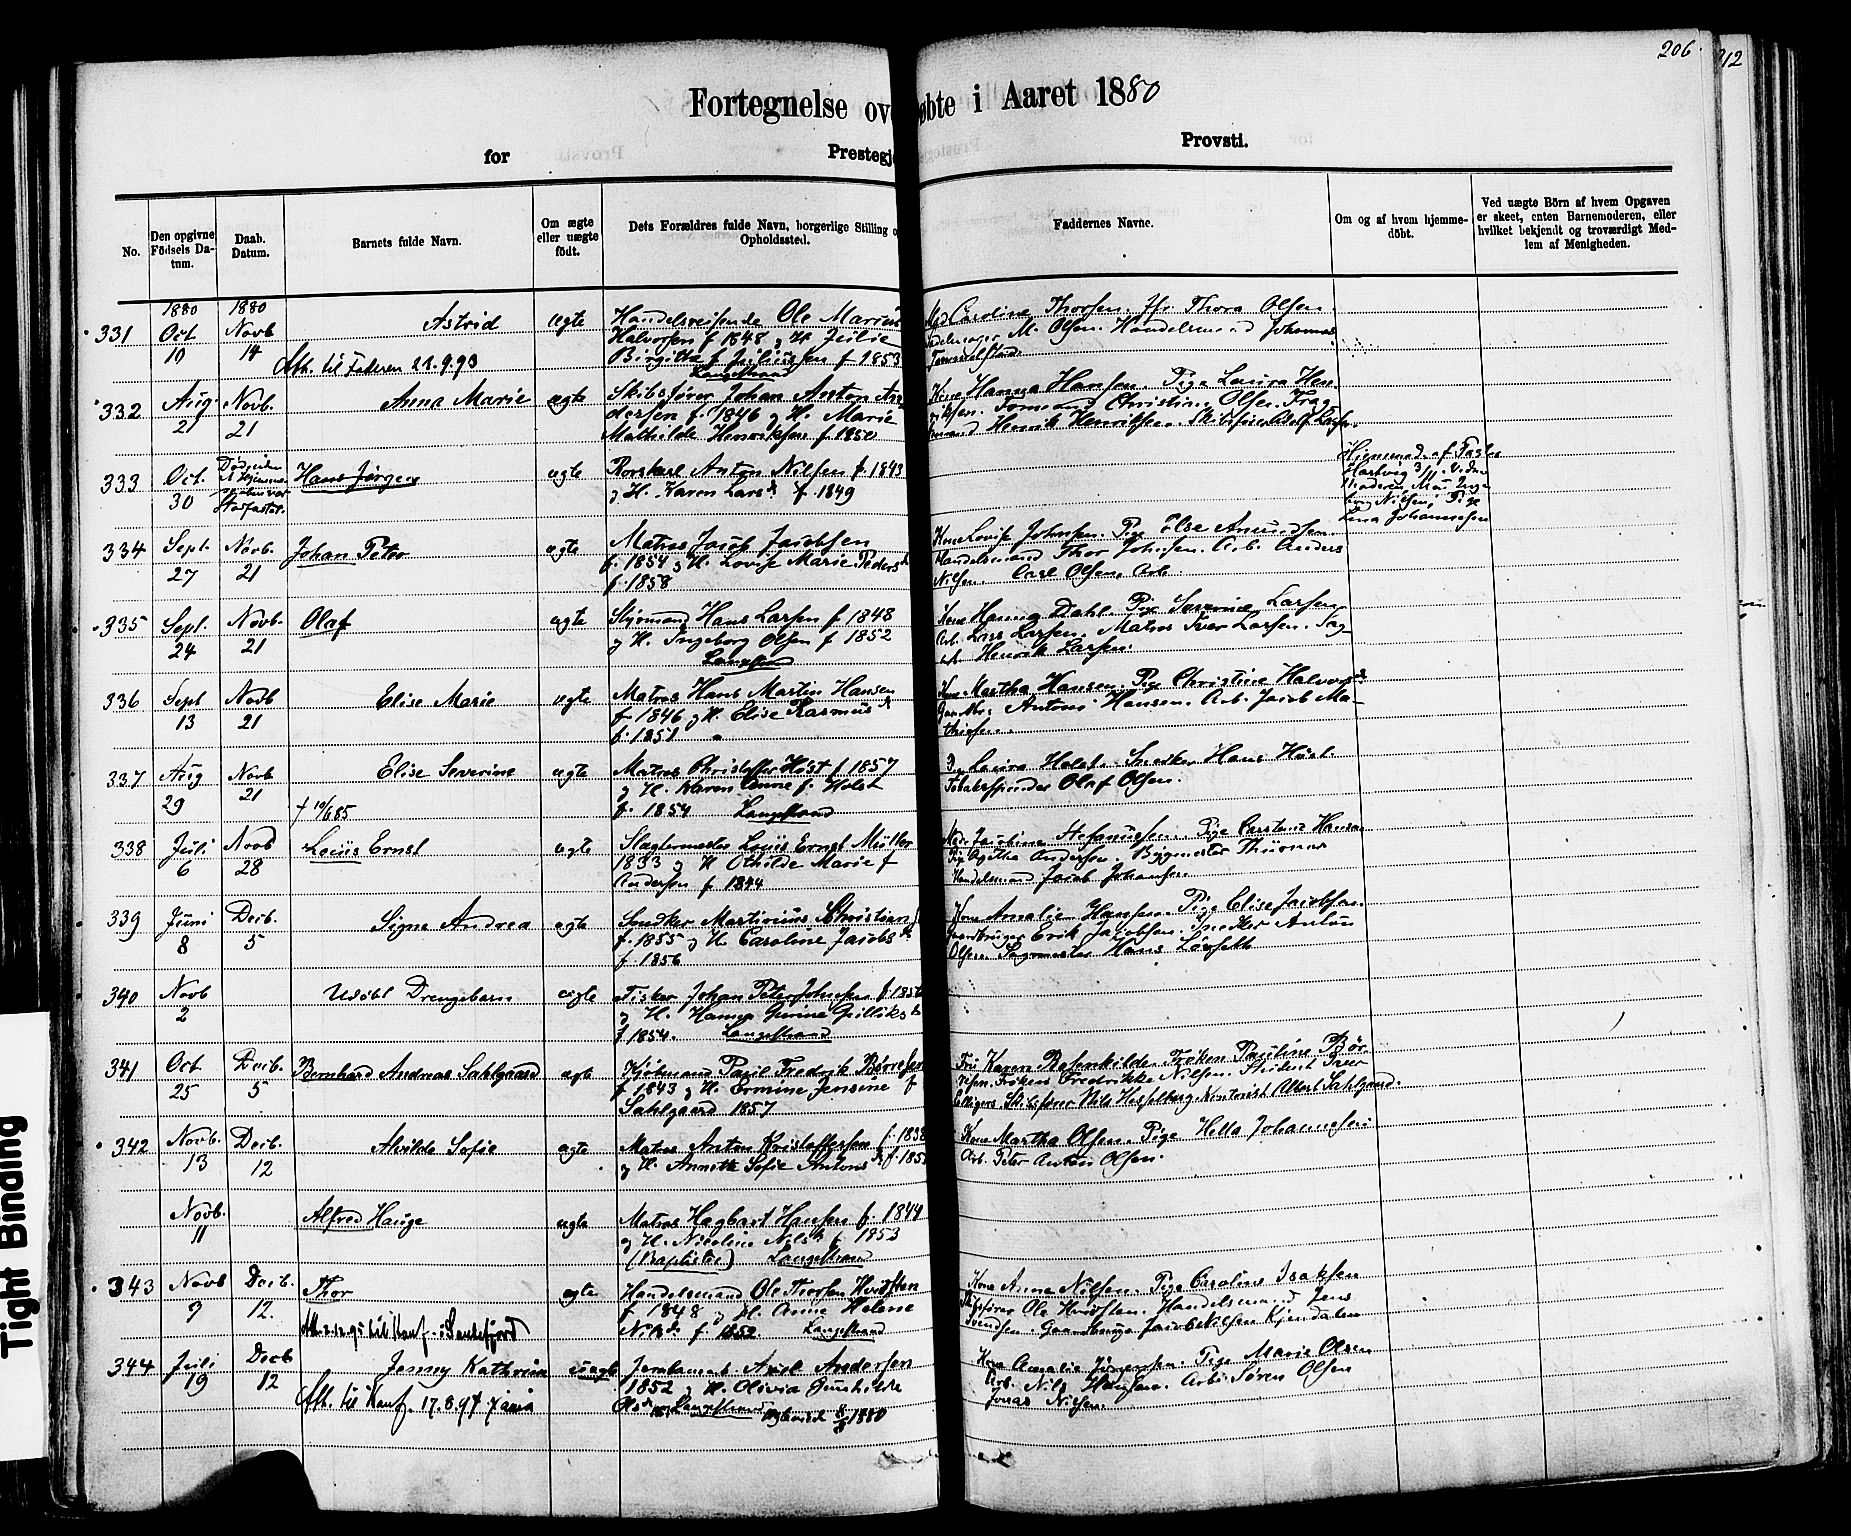 206.
212
Fortegnelse ov øbte i Aaret 1880
for Prestegje Provsti.
No.
Den opgivne Födsels Datum.
Daab. Datum.
Barnets fulde Navn.
Om ægte eller uægte födt.
Dets Forældres fulde Navn, borgerlige Stilling o
Opholdssted.
Faddernes Navne.
Om og af hvem hjemmedöbt.
Ved uægte Börn af hvem Opgaven er skeet, enten Barnemoderen, eller hvilket bekjendt og troværdigt Medlem af Menigheden.
331 1880 Oct 10 1880 Novb 14 Astrid ægte
Att. til Faderen 21.9.93
Handelsreisende Ole Marius
Halvorsen f 1848 og H. Julie
Birgitte f. Juliussen f 1853
Langestrand
Mad Caroline Thorsen. Jfr Thora Olsen.
M. Olsen. Handelsmand Johannes
332 Aug. 21 Novb. 21 Anna Marie ægte
Skibsfører Johan Anton An
dersen f. 1846 og H. Marie
Mathilde Henriksen f. 1850
Kone Hanna Hansen. Pige Laura Hen
riksen. Tømmand Christin Olsen. Frag
Henrik Henriksen. Skibsfører Adolf Larsen.
333 Oct. 30 Hans Jørgen ægte
Rorskarl Anton Nilsen f. 1843
og H. Karen Larsd. f. 1849
Hjemmed. af
Hartvig 3/11. Vidner
Moderen,
Nielsen, Pige
Lena Johannesen
334 Sept. 27 Novb. 21 Johan Peter ægte
Matros Jacob Jacobsen
f. 1854 og H. Lovise Marie Pedersd
f. 1858
Kone Lovise Johnsen. Pige Else Amundsen.
Handelsmand Thor Johnsen. Arb. Anders
Nilsen. Carl Olsen, Arb.
335 Sept. 24 Novb. 21 Olaf ægte
Styrmand Hans Larsen f 1848
og H. Ingeborg Olsen f 1852
Kone Hanna Dahl. Pige Severine Larsen
Arb. Lars Larsen. Matros Iver Larsen. Sag
arb. Henrik Larsen.
336 Sept 13 Novb 21 Elise Marie ægte
Matros Hans Martin Hansen
f. 1846 og H. Elise Rasmusd
f. 1851
Kone Martha Hansen. Pige Christine Halvorsd
Antoni Hansen. Arb. Jacob Ma
thisen.
337 Aug 29 Novb 21 Elise Severine ægte
† 10/6 85
Matros Christoffer Høst f 1857
og H. Karen Anne f. Holst
f. 1854 Langestrand
Laura Holst. Snedker Hans Høst.
Tobaksspinder Olaf Olsen.
338 Juli 6 Novb 28 Louis Ernst ægte
Slagtermester Louis Ernst Müller
1833 og H Othilde Marie f
Andersen f. 1844
Stefanussen. Pige Carstine Hansen
Pige Agathe Andersen. Bygmester Thurmer
Handelsmand Jacob Johansen.
339 Juni 8 Decb. 5 Signe Andrea ægte
Snedker Martinius Christians
f. 1855 og H. Caroline Jacobsd
f 1856
Kone Amalie Hansen. Pige Elise Jacobsen.
Gaardbruger Erik Jacobsen. Snedker Anton
Olsen. Sagmester Hans Løvseth
340 Novb 2 Udöbt Drengebarn ægte
Fisker Johan Peter Johnsen f. 1852
og H. Hanna Gurine Gulliksd
f 1854. Langestrand
341 Oct 25 Decb. 5 Bernhard Andreas Sahlgaard ægt
Kjöbmand Paul Fredrik Børresen
f 1843 og H. Ermine Jensine f
Sahlgaard 1857
Fru Karen Bosenkilde. Frøken Pauline Bør
resen. Frøken Fredrikke Nilsen. Student Iver
Skibsfører Nils Hesselberg. Kontorist Albert Sahlgaard.
342 Novb. 13 Decb. 12 Alvilde Sofie ægte
Matros Anton Kristoffersen f. 1838
og H. Annette Sofie Antonsd f. 185
Kone Martha Olsen. Pige Hella Johannesen
Arb. Peter Anton Olsen.
Novb. 11 Alfred Hauge ægte
Matros Hagbart Hansen f. 1844
og H. Nicoline Nilsd f. 1853
(Baptister) Langestrand
343 Novb 9 Decb. 12. Thor ægte
til Konf. i Sandefjord
Handelsmand Ole Thorsen Hvidsten
f 1848 og H. Anne Helene
Nilsd. f. 1852. Langestrand
Kone Anne Nilsen. Pige Caroline Isaksen
Skibsfører Ole Hvidsten. Handelsmand Jens
Svendsen. Gaardbruger Jacob Nilsen Kjendalen
344 Juli 19 Decb 12 Jenny Kathrine uægte
Att. til Konf. 17.8.94
Jernbanearb. Axel Andersen
1852 og H. Olivia Gunhilde
Olsd Langestrand 1880
Kone Amalie Jørgensen. Pige Marie Olsen
Arb. Nils Hansen. Arb. Søren Olsen
Jonas Nilsen.
Tight Binding